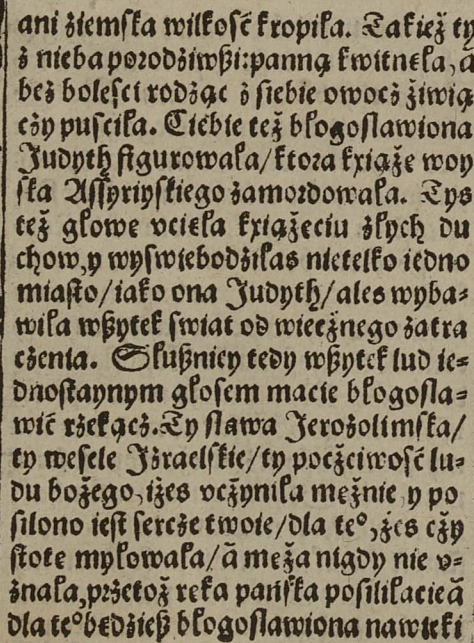 ani źiemſka wilkość kropiła. Takież ty
z nieba porodźiwßi: panną kwitnęła, á
beż boleſci rodząc z ſiebie owocż żiwią
cży puſciła. Ciebie też błogoſlawiona
Judyth figurowała/ktora kxiąże woy
ſka Aſſyriyſkiego zamordowała. Tys
też głowe vcięła kxiążeciu złych du
chow, y wyſwiebodźiłas nietelko iedno
miaſto/iako ona Judyth/ales wyba⸗
wiła wßytek ſwiat od wiecżnego zatra
cżenia. Słußnicy tedy wßytek lud ie⸗
dnoſtaynym głoſem macie błogoſla⸗
wić rżekącż. Ty ſlawa Jerozolimſka/
ty weſele Jżraelſkie/ty pocżciwość lu⸗
du bożego, iżes vcżyniła meżnie y po
ſilono ieſt ſercże twoie/dla teº, żes cży
ſtote myłowała/ā meża nigdy nie v⸗
znała, przetoż ręka pańſka poſiliłacie ā
dla teº będźieß błogoſlawiona nawieki